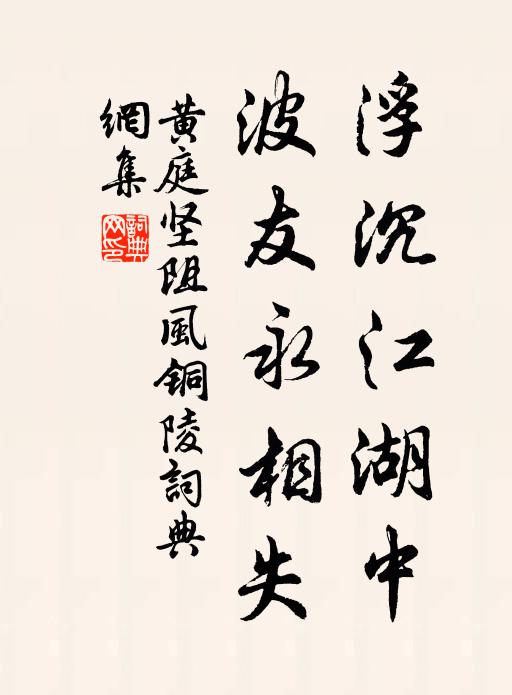 浮沉江湖中
波友永相失
黄庭坚阻風铜陵詞典
網集
詞典
网印